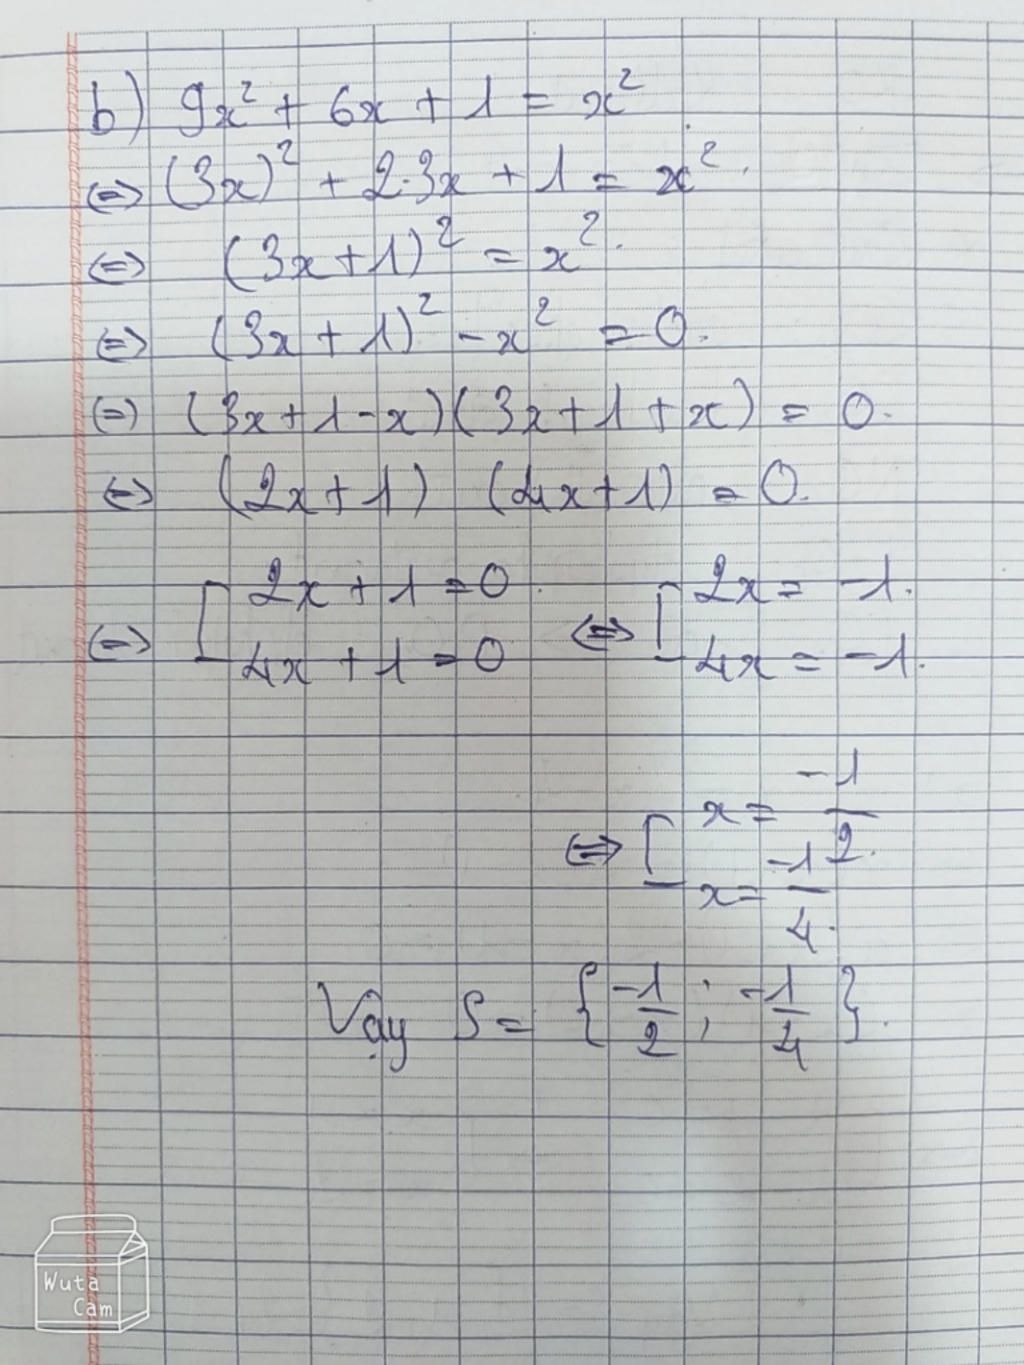 b) 9x² + 6x + 1 = x²
⇔ (3x)² + 2.3x + 1 = x².
⇔ (3x+1)² = x².
⇔ (3x+1)² - x² = 0.
⇔ (3x+1-x)(3x+1+x) = 0.
⇔ (2x+1) (4x+1) = 0.
⇔ [ 2x+1 = 0. ⇔ [ 2x = -1.
4x+1 = 0 4x = -1.
⇔ [ x = -1/2.
x = -1/4.
Vậy S = { -1/2 ; -1/4 }.
Wuta
Cam